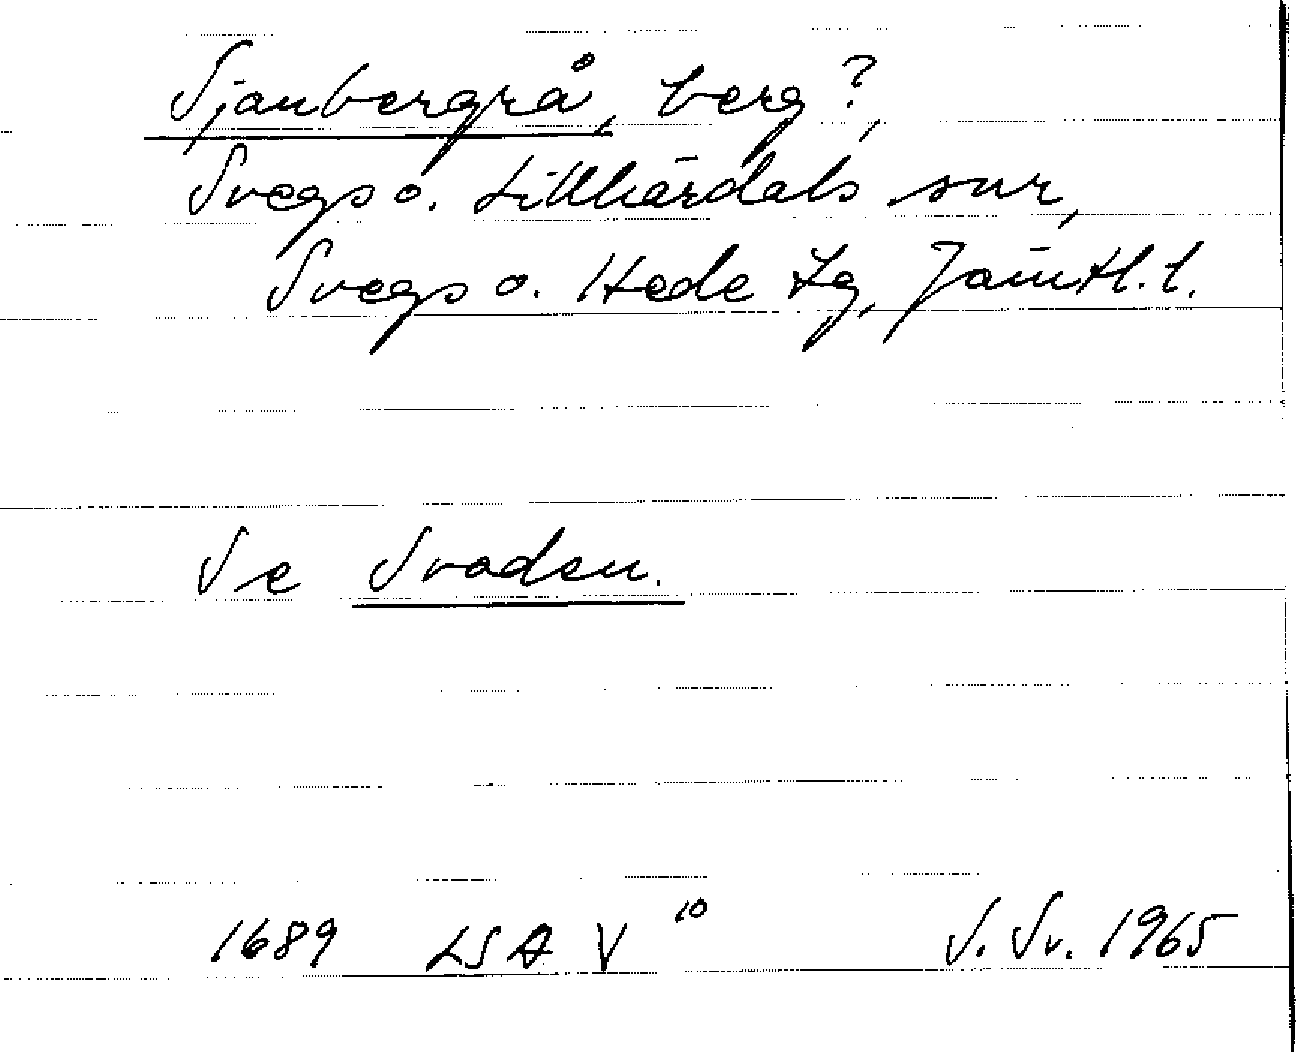 Sjanbergrå, berg?,
Svegs o. Lillhärdals snr,
Svegs o. Hede tg, Jämtl. l.
Se Svaden.
1689 LSA V 10 S. Sv. 1965